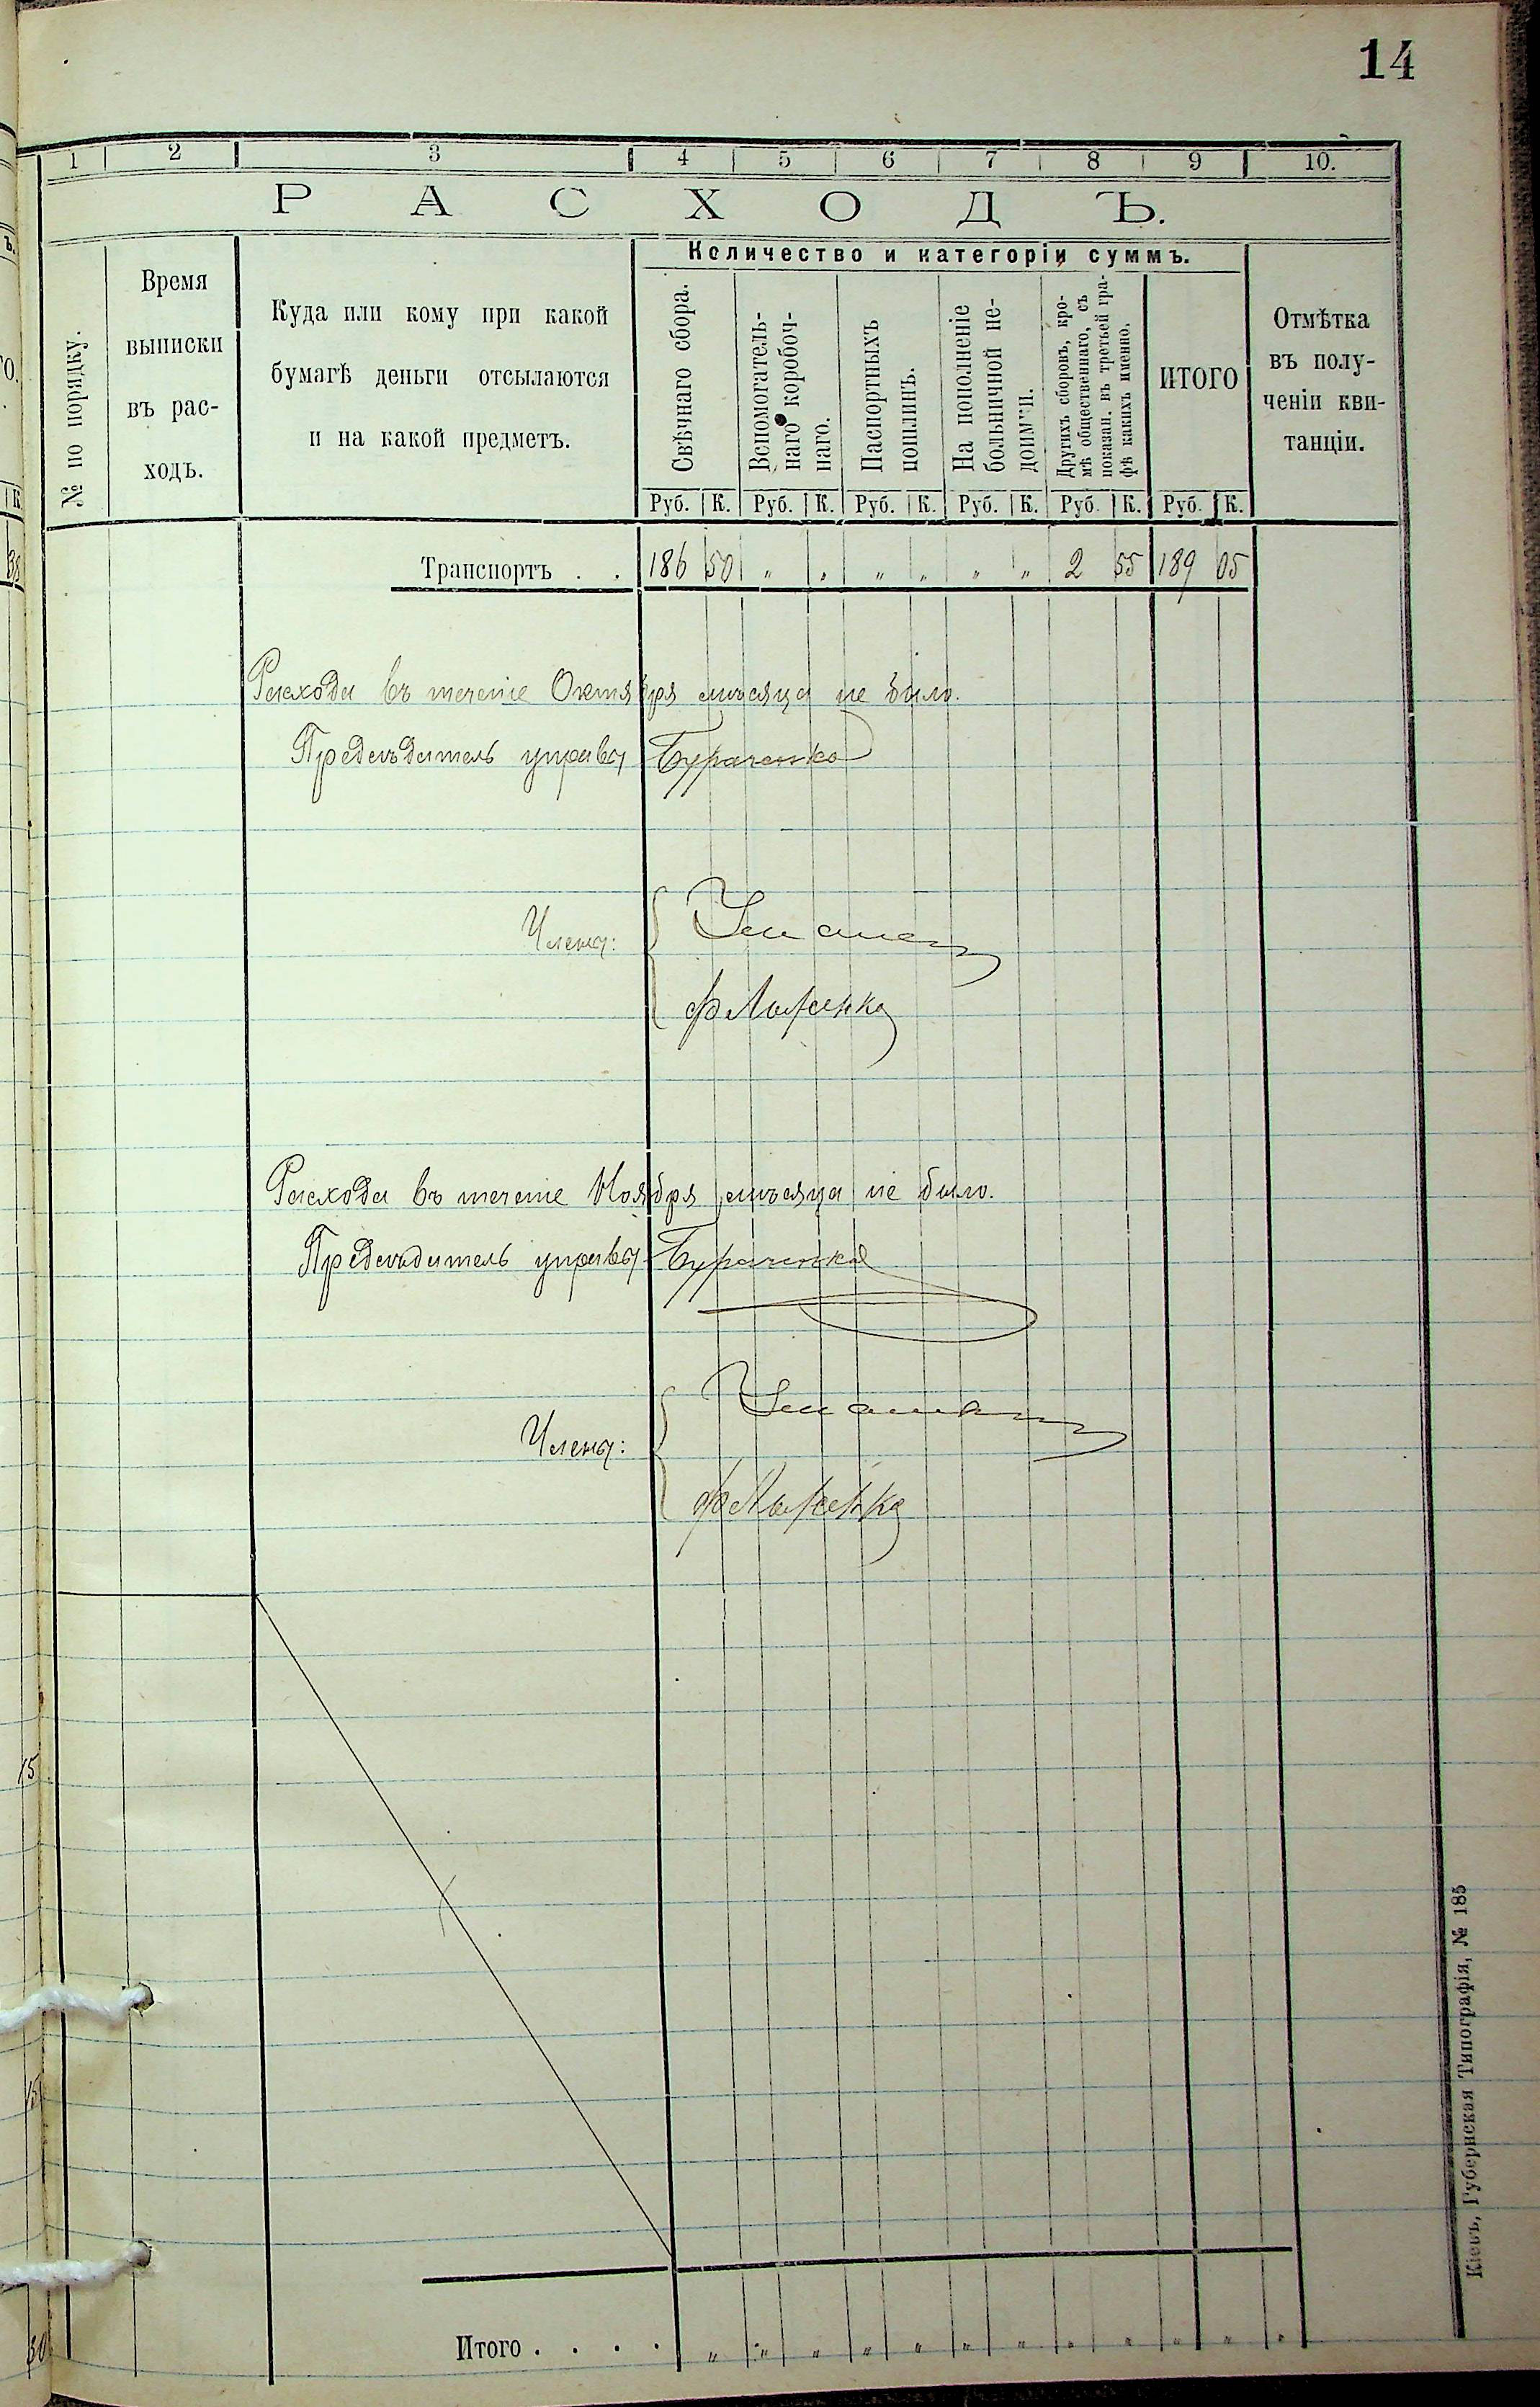 14
1 2 3 4 5 6 7 8 9 10.
РАСХОДЪ.
№ по порядку.
Время
выписки
въ рас-
ходъ.
Куда или кому при какой
бумагѣ деньги отсылаются
и на какой предметъ.
Количество и категоріи суммъ.
Свѣчнаго сбора.
Вспомогатель-
наго коробоч-
наго.
Паспортныхъ
пошлинъ.
На пополненіе
больничной не-
доимки.
Другихъ сборовъ, кро-
мѣ общественнаго, съ
показан. въ третьей гра-
фѣ какихъ именно.
ИТОГО
Отмѣтка
въ полу-
ченіи кви-
танціи.
Руб. К. Руб. К. Руб. К. Руб. К. Руб. К. Руб. К.
Транспортъ . . 186 50 „ „ „ „ „ „ 2 55 189 05
Расхода въ теченіе Октября мѣсяца не было.
Предсѣдатель управы Бураченко
Члены:
Расхода въ теченіе Ноября мѣсяца не было.
Предсѣдатель управы Бураченко
Члены:
Итого . . . . „ „ „ „ „ „ „ „ „ „ „ „
Кіевъ, Губернская Типографія, № 185